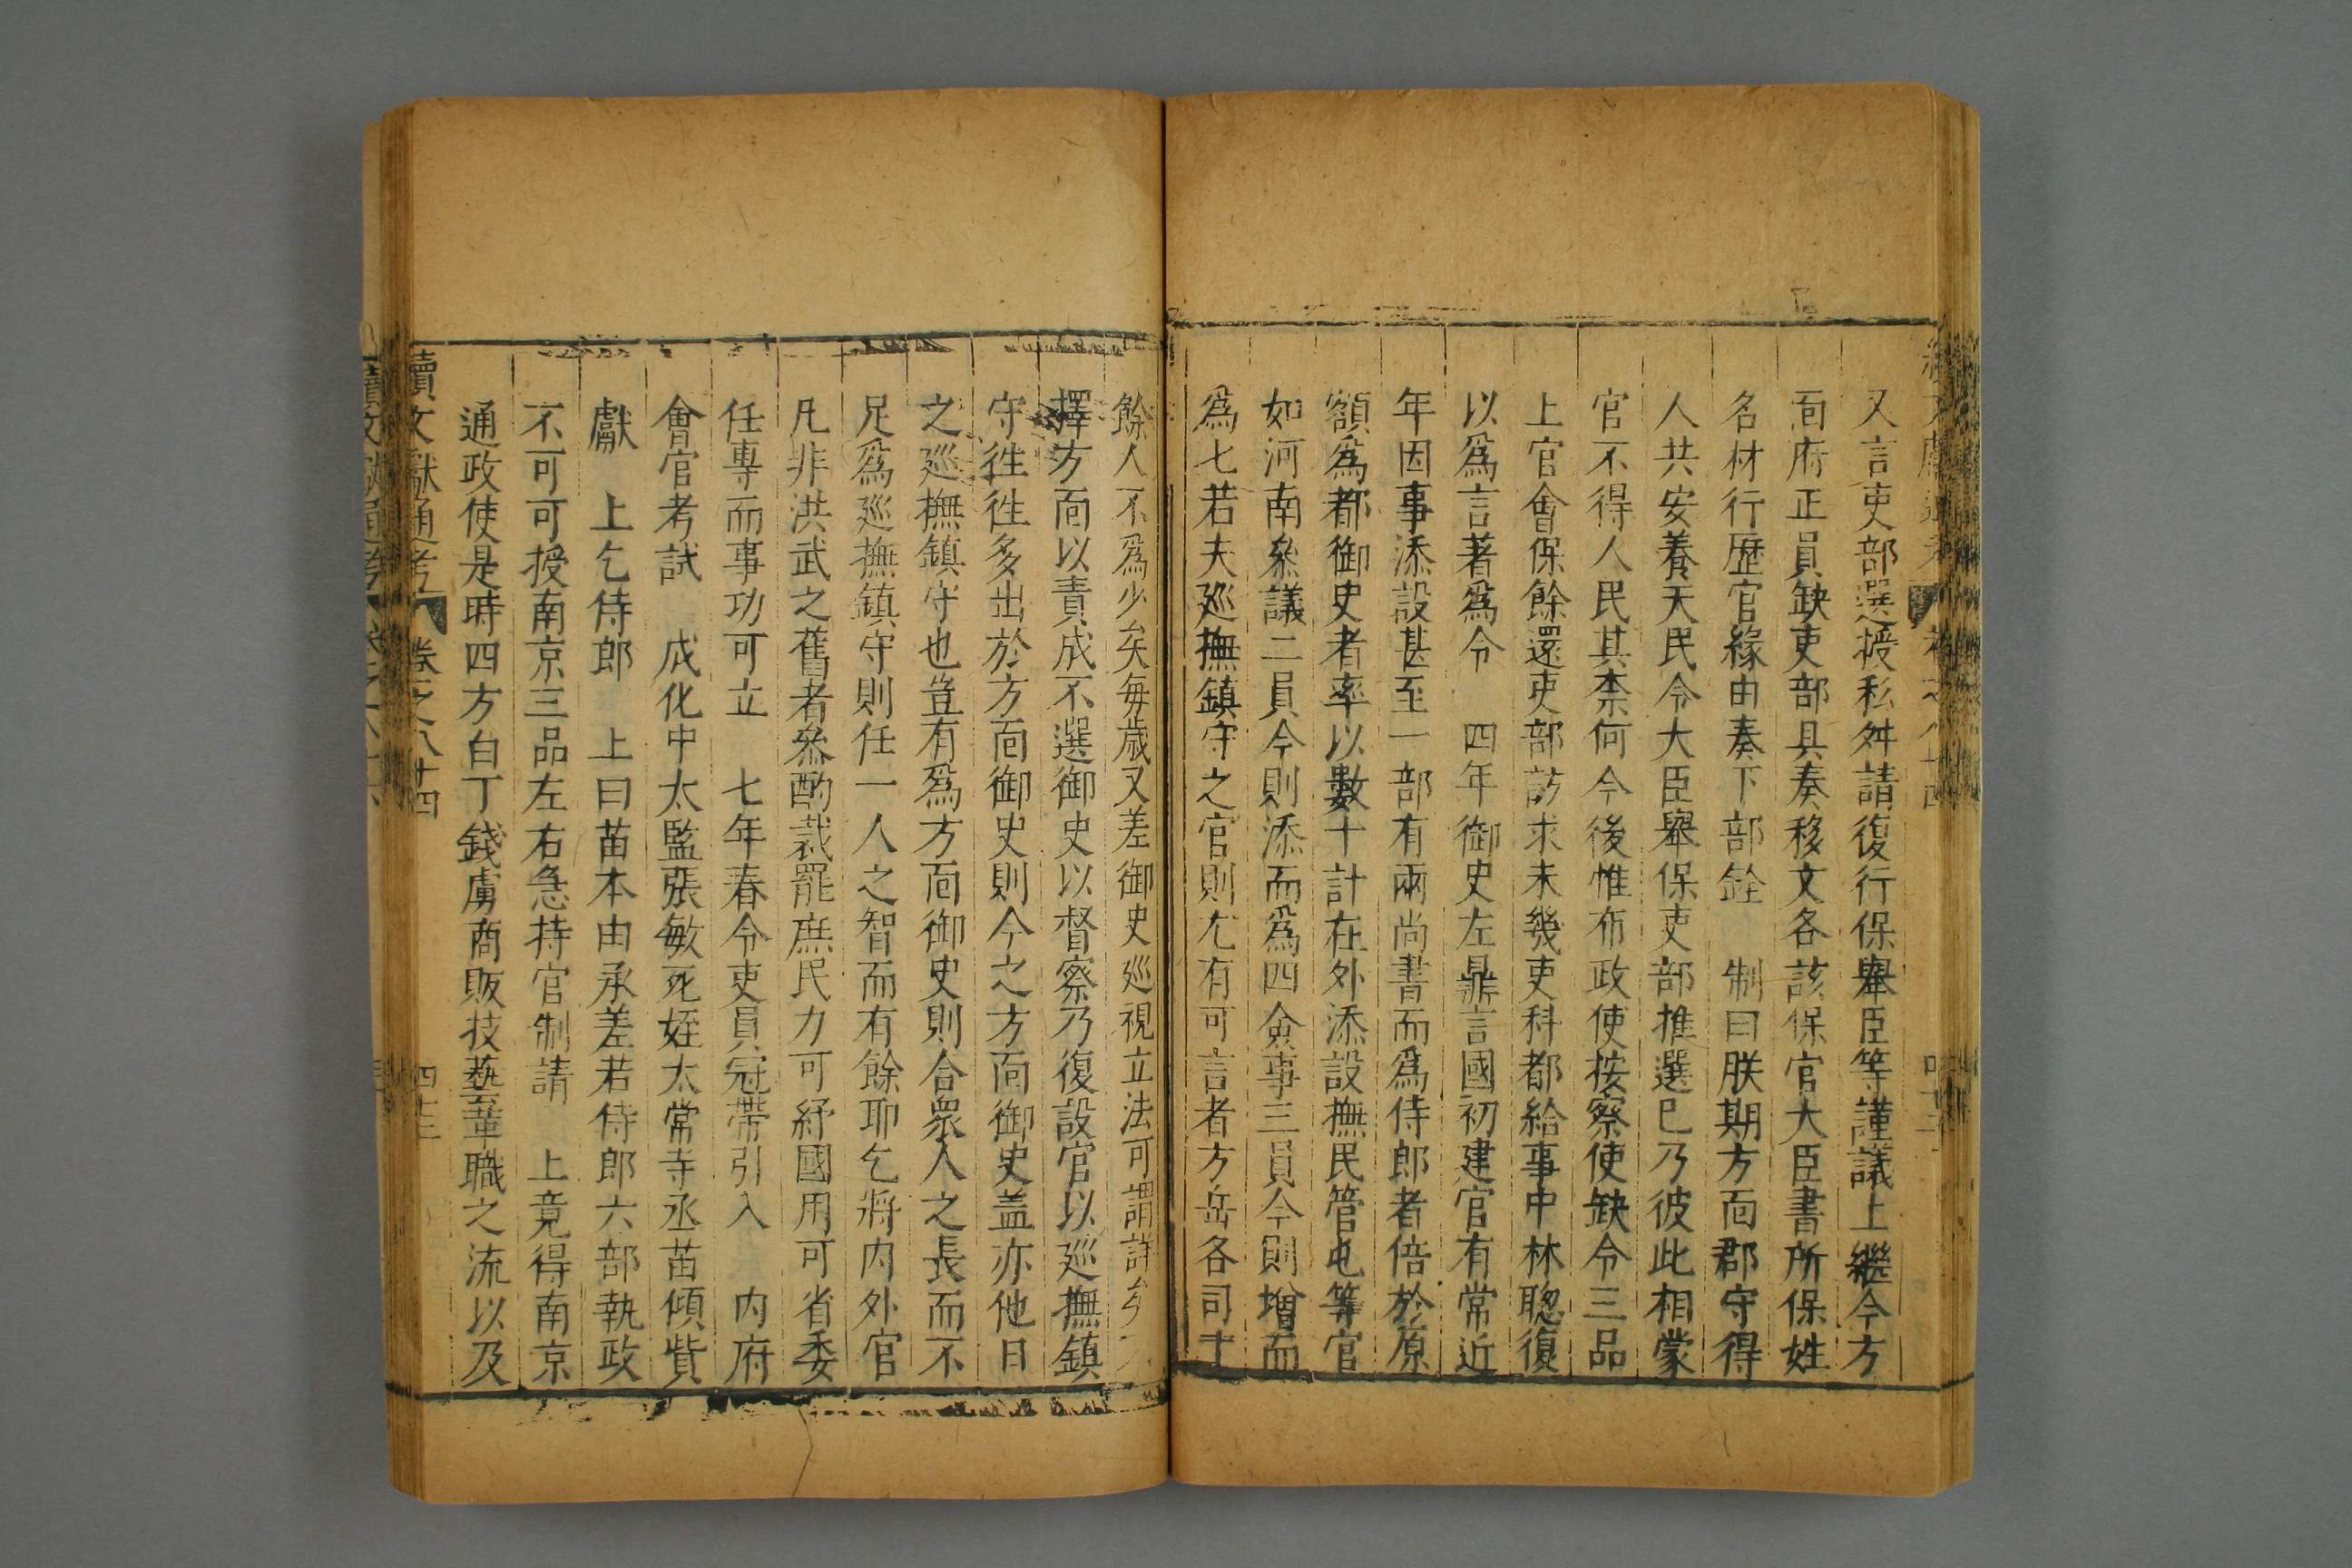 又言吏部選授私舛請復行保舉臣等謹議上繼今方
靣府正員缺吏部具奏移文各該保官大臣書所保姓
名材行歷官緣由奏下部銓　制曰朕期方靣郡守得
人共安養天民令大臣舉保吏部推選已乃彼此相蒙
官不得人民其柰何今後惟布政使按察使缺令三品
上官會保餘還吏部訪求未幾吏科都給事中林聰復
以爲言著爲令　四年御史左鼎言國初建官有常近
年因事添設甚至一部有兩尚書而爲侍郎者倍於原
額爲都御史者率以數十計在外添設撫民管屯等官
如河南叅議二員今則添而爲四僉事三員今則增而
爲七若夫廵撫鎮守之官則尤有可言者方岳各司十
餘人不爲少矣每歲又差御史廵視立法可謂詳矣
擇方靣以責成不選御史以督察乃復設官以廵撫鎮
守徃徃多出於方靣御史則今之方靣御史盖亦他日
之廵撫鎮守也豈有爲方靣御史則合衆人之長而不
足爲廵撫鎮守則任一人之智而有餘耶乞將内外官
凡非洪武之舊者叅酌裁罷庶民力可紓國用可省委
任專而事功可立　七年春令吏員冠帶引入　内府
會官考試　成化中太監張敏死姪太常寺丞苗傾貲
獻　上乞侍郎　上曰苗本由承差若侍郎六部執政
不可可授南京三品左右急持官制請　上竟得南京
通政使是時四方白丁錢虜商販技藝輩職之流以及
續文獻通考　卷之八十四　四十三